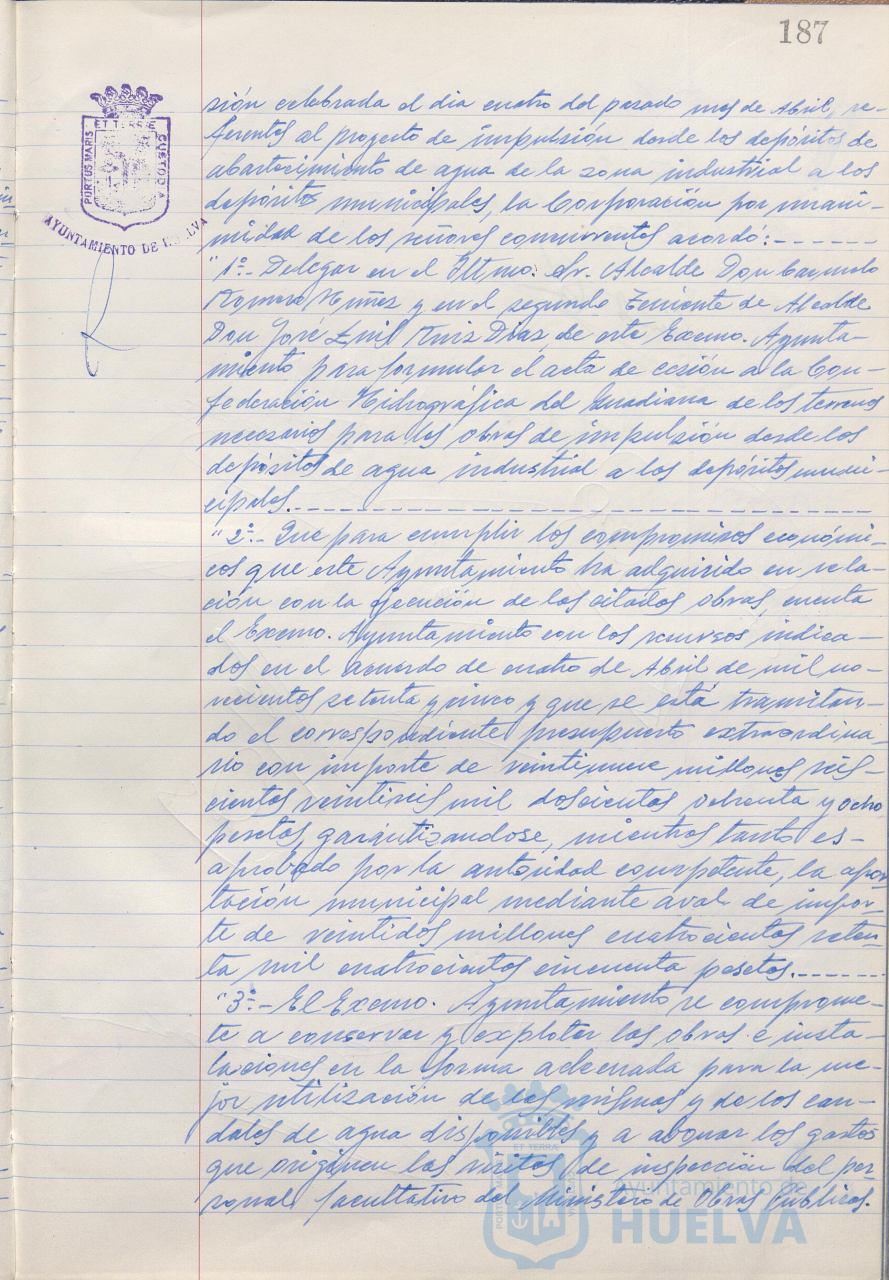 187
ET TERRÆ
PORTUS MARIS
CUSTODIA
AYUNTAMIENTO DE HUELVA
sión celebrada el dia cuatro del pasado mes de Abril, re-
ferentes al proyecto de impulsión desde los depósitos de
abastecimiento de agua de la zona industrial a los
depósitos municipales, la Corporación por unani-
midad de los señores concurrentes acordó:------
"1º.- Delegar en el Iltmo. Sr. Alcalde Don Carmelo
Romero Núñez y en el segundo Teniente de Alcalde
Don José Luis Ruiz Díaz de este Excmo. Ayunta-
miento para formular el acta de cesión a la Con-
federación Hidrográfica del Guadiana de los terrenos
necesarios para las obras de impulsión desde los
depósitos de agua industrial a los depósitos muni-
cipales.------
"2º.- Que para cumplir los compromisos económi-
cos que este Ayuntamiento ha adquirido en rela-
ción con la ejecución de las citadas obras, cuenta
el Excmo. Ayuntamiento con los recursos indica-
dos en el acuerdo de cuatro de Abril de mil no-
vecientos setenta y cinco y que se está tramitan-
do el correspondiente presupuesto extraordina-
rio con importe de veintinueve millones seis-
cientas veintiseis mil doscientas ochenta y ocho
pesetas garantizandose, mientras tanto es
aprobado por la autoridad competente, la apor-
tación municipal mediante aval de impor-
te de veintidos millones cuatrocientas seten-
ta mil cuatrocientas cincuenta pesetas.------
"3º.- El Excmo. Ayuntamiento se comprome-
te a conservar y explotar las obras e insta-
laciones en la forma adecuada para la me-
jor utilización de las mismas y de los cau-
dales de agua disponibles y a abonar los gastos
que originen las visitas de inspección del per-
sonal facultativo del Ministerio de Obras Públicas.
ET TERRÆ
PORTUS MARIS
Ayuntamiento de
HUELVA